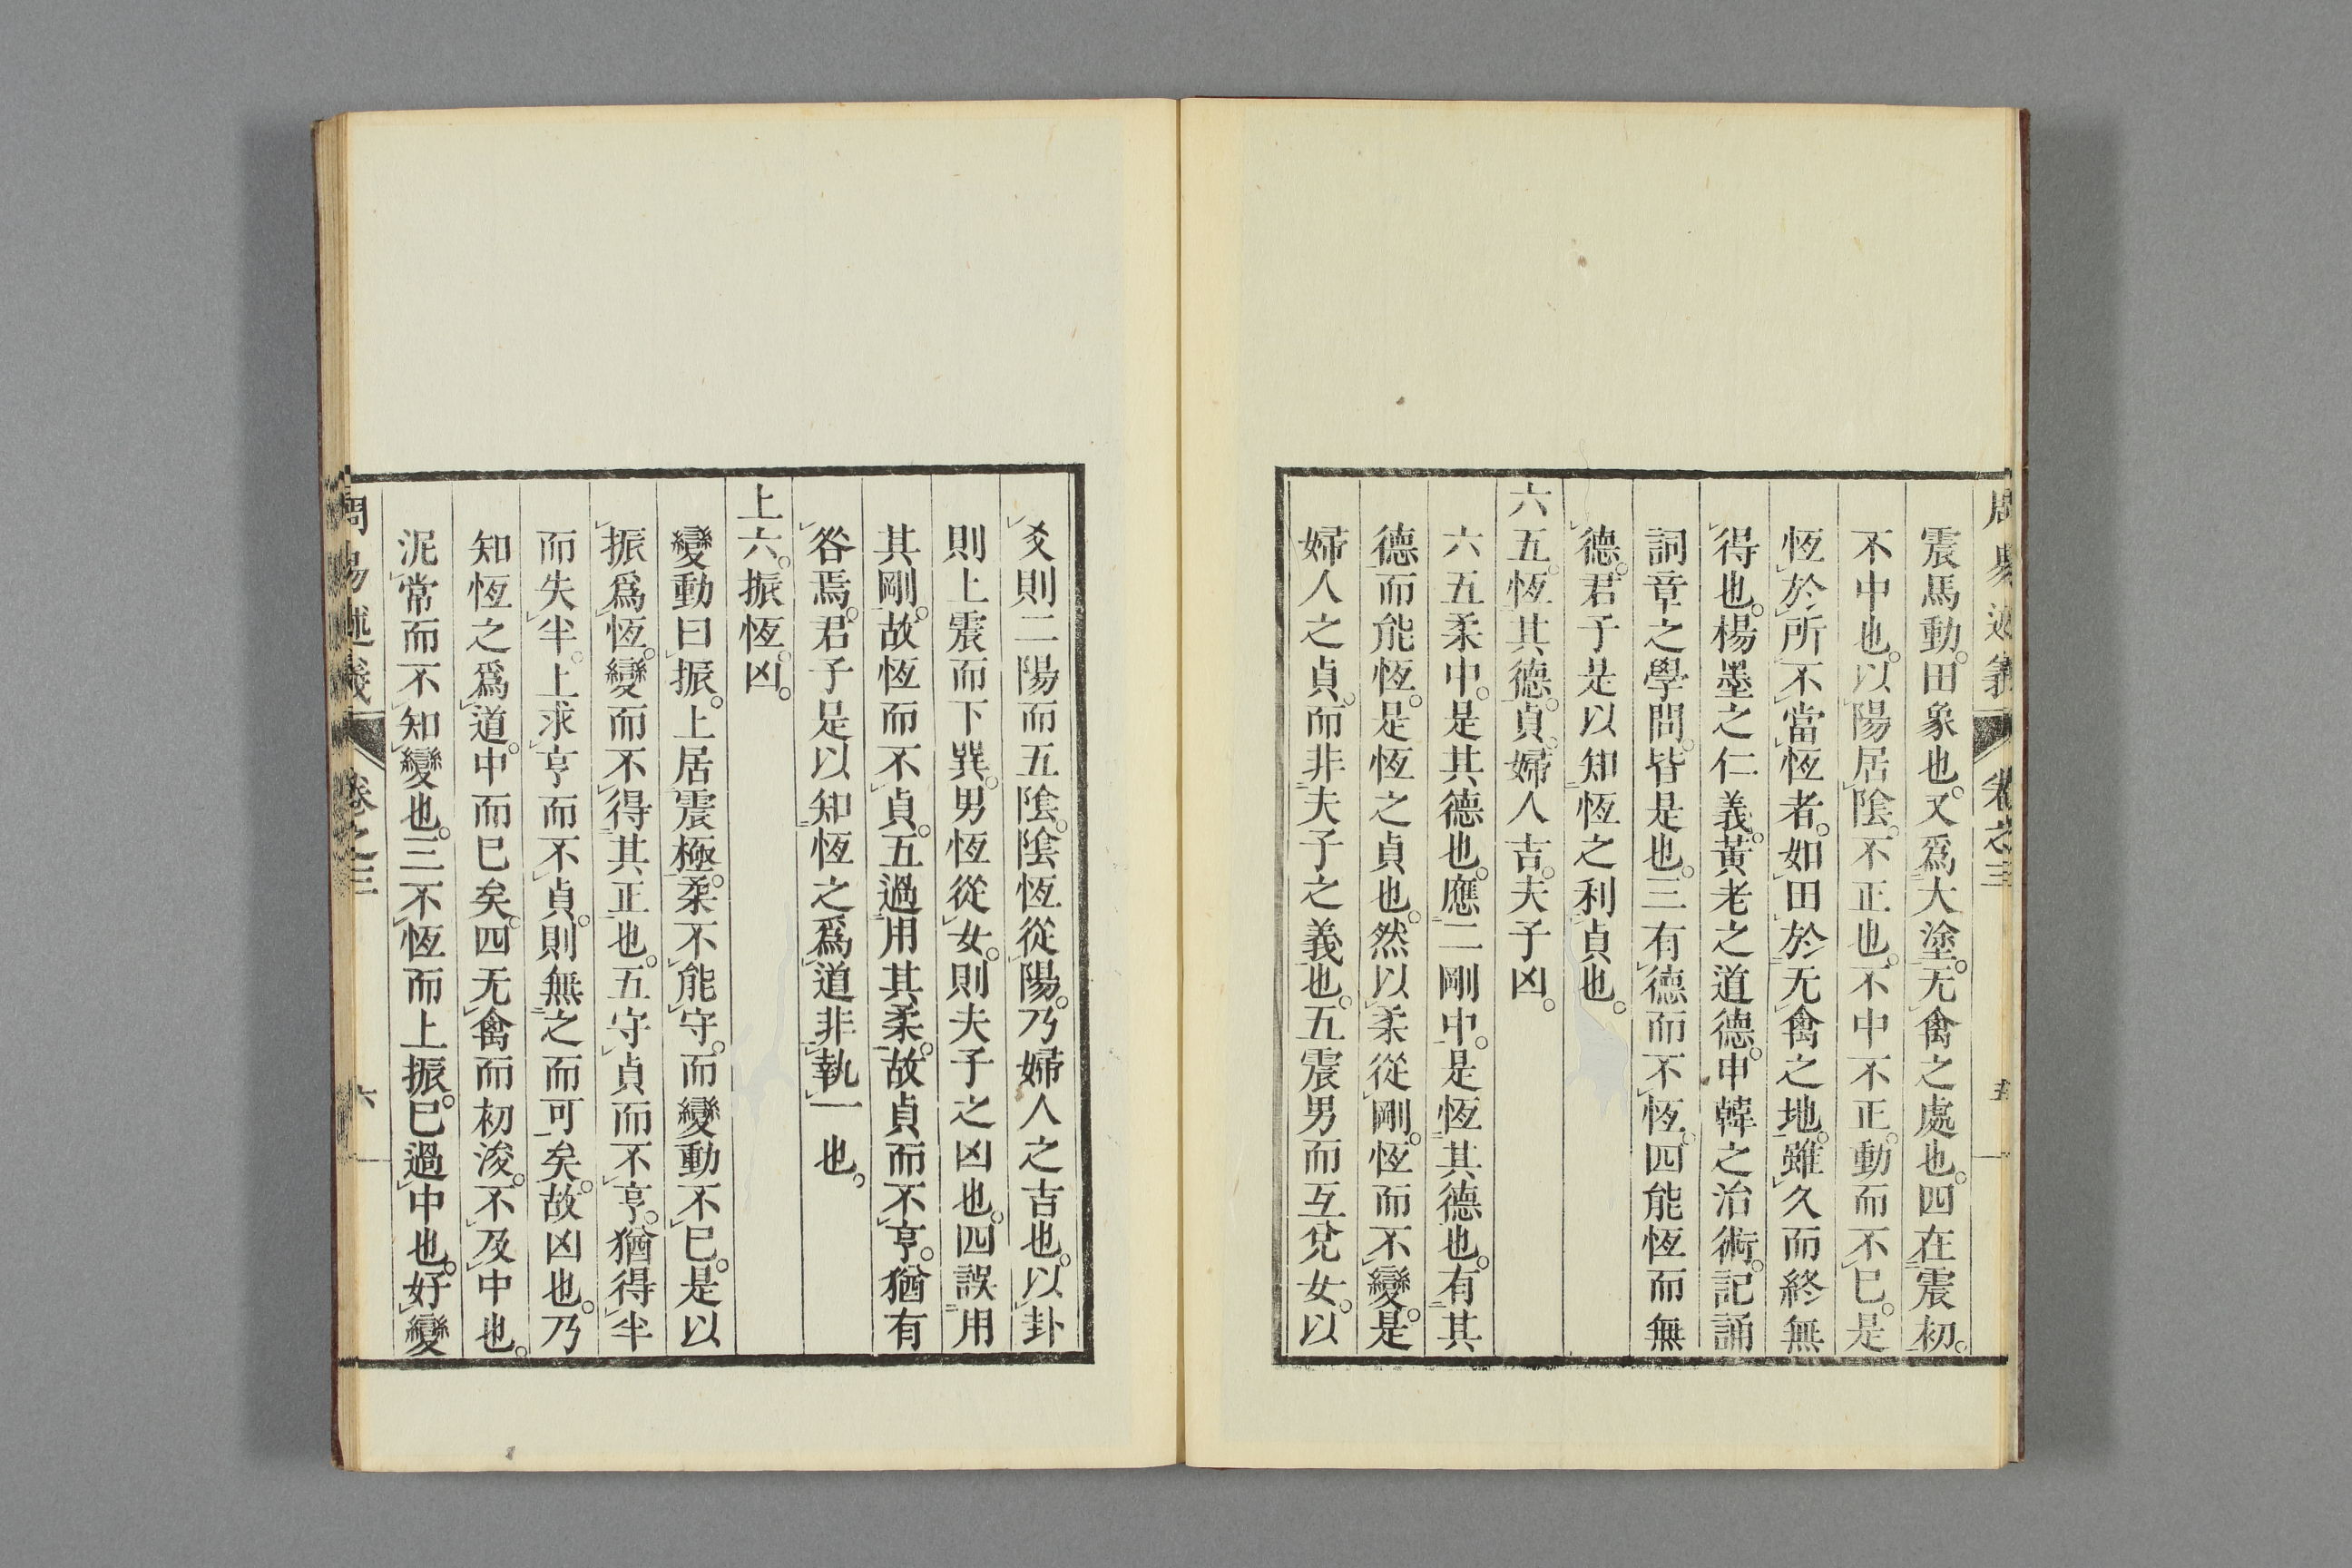 周易述義 卷之三 五
震馬動。田象也。又爲大塗。无禽之處也。四在震初。
不中也。以陽居陰。不正也。不中不正。動而不已。是
恆於所不當恆者。如田於无禽之地。雖久而終無
得也。楊墨之仁義。黃老之道德。申韓之治術。記誦
詞章之學問。皆是也。三有德而不恆。四能恆而無
德。君子是以知恆之利貞也。
六五。恆其德。貞。婦人吉。夫子凶。
六五柔中。是其德也。應二剛中。是恆其德也。有其
德而能恆。是恆之貞也。然以柔從剛。恆而不變。是
婦人之貞。而非夫子之義也。五震男而互兌女。以
爻則二陽而五陰。陰恆從陽。乃婦人之吉也。以卦
則上震而下巽。男恆從女。則夫子之凶也。四誤用
其剛。故恆而不貞。五過用其柔。故貞而不亨。猶有
咎焉。君子是以知恆之爲道非執一也。
上六。振恆。凶。
變動曰振。上居震極。柔不能守。而變動不已。是以
振爲恆。變而不得其正也。五守貞而不亨。猶得半
而失半。上求亨而不貞。則無之而可矣。故凶也。乃
知恆之爲道。中而已矣。四无禽而初浚。不及中也。
泥常而不知變也。三不恆而上振。已過中也。好變
周易述義 卷之三 六